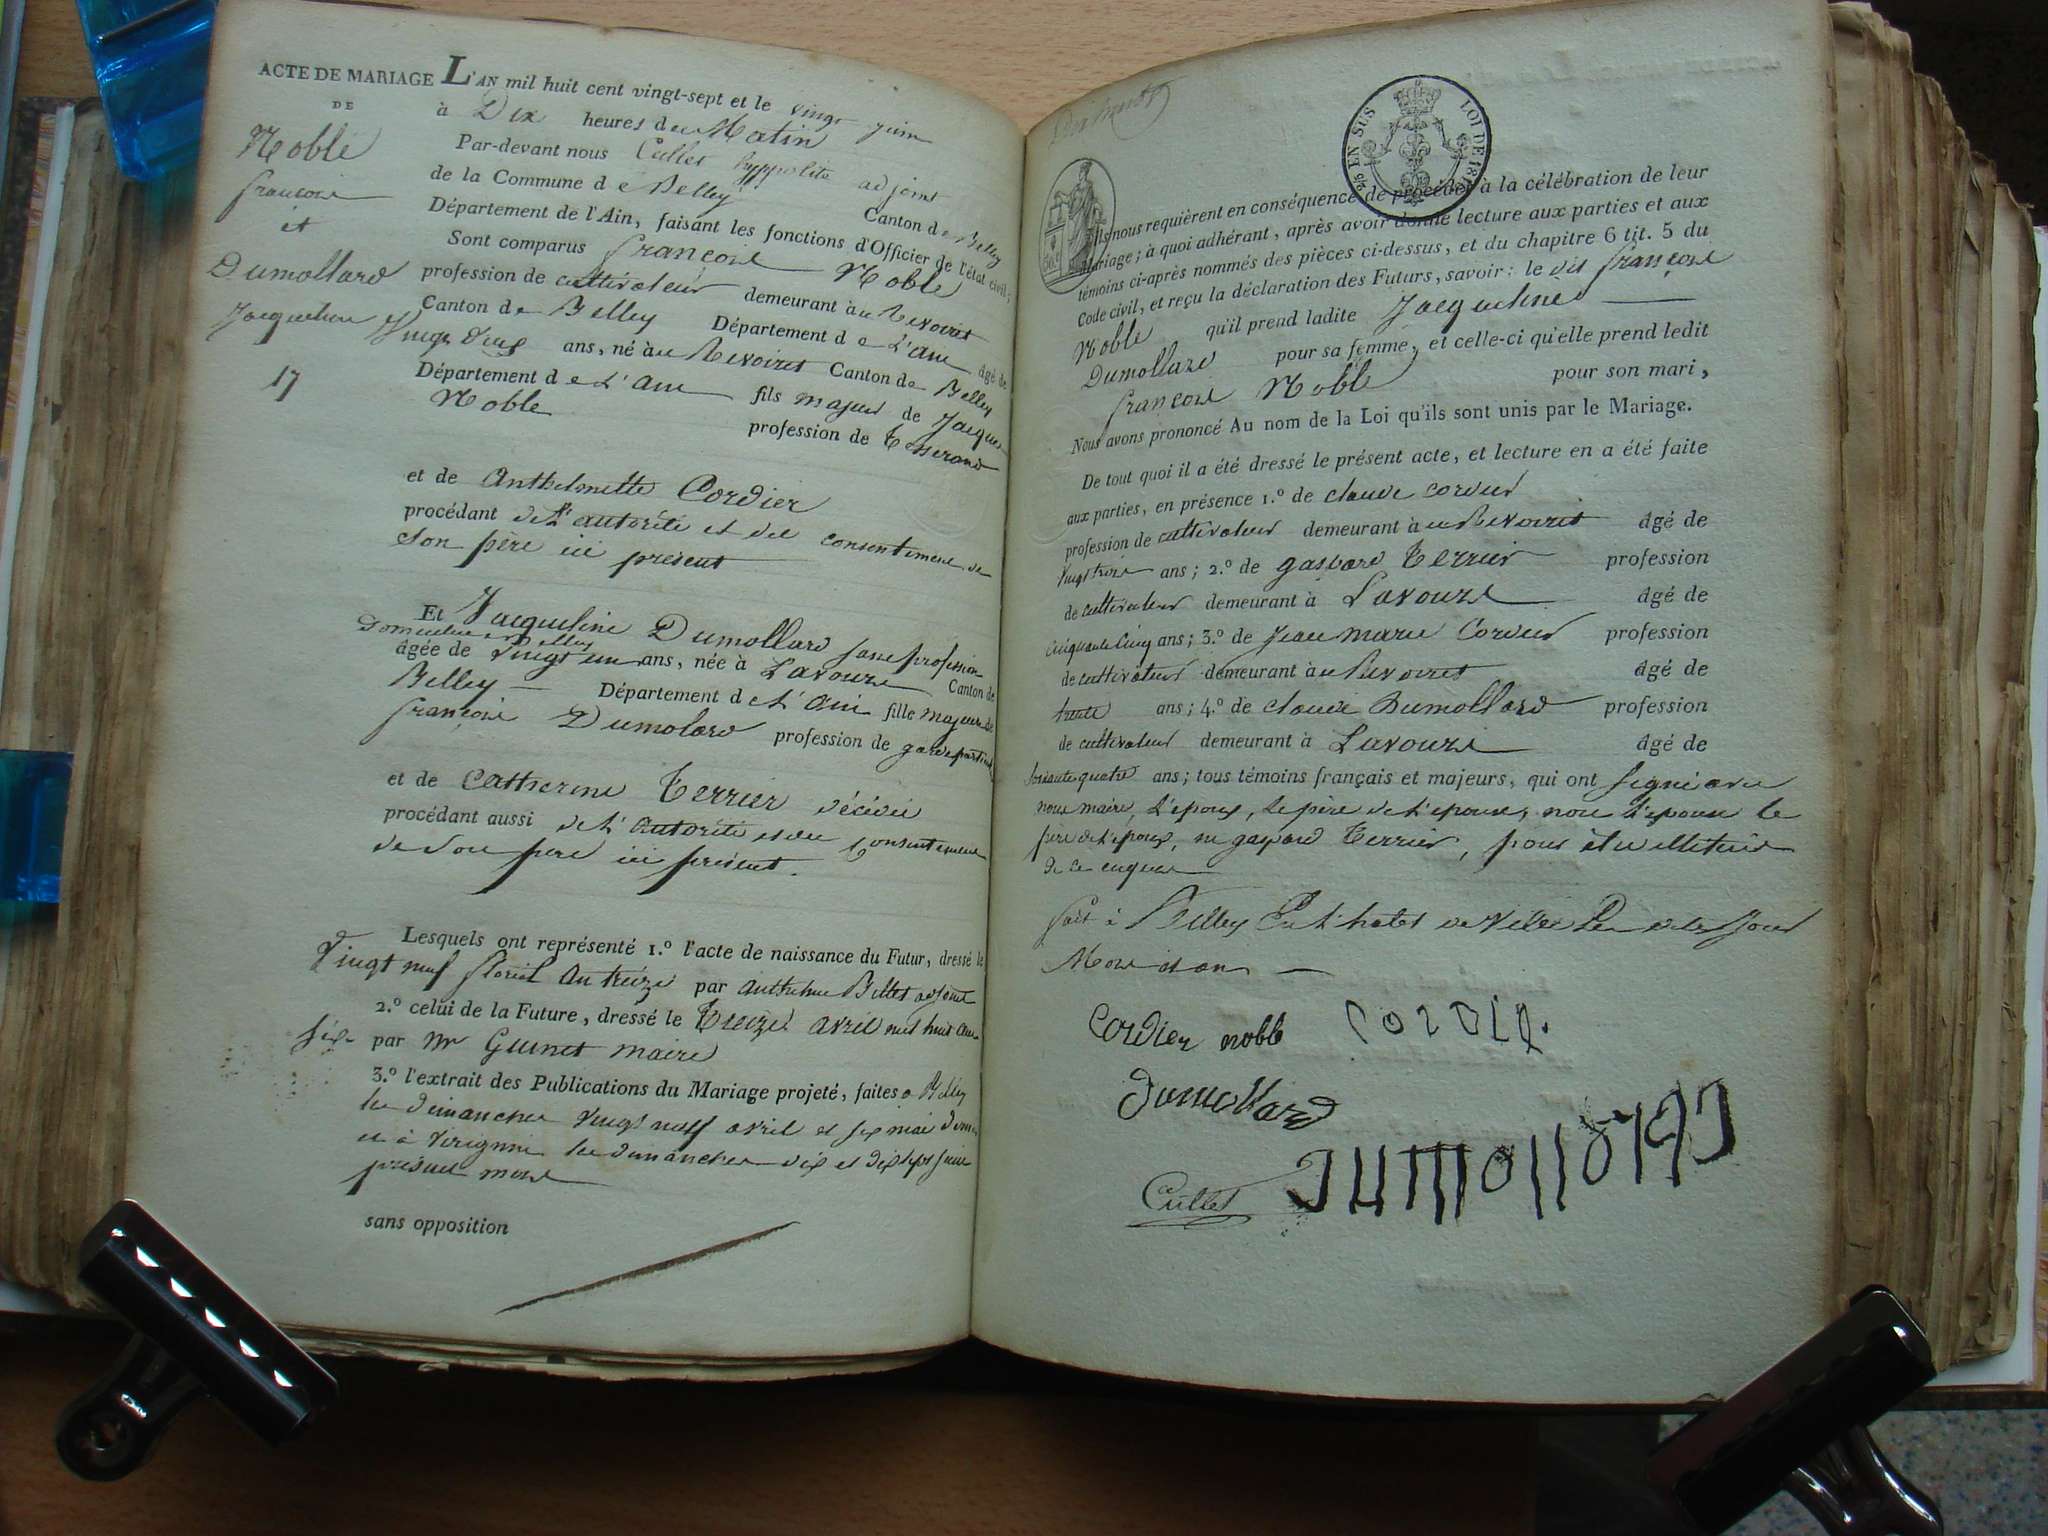 ACTE DE MARIAGE
DE
Noble
françois
et
Dumollard
Jacqueline
17
L'AN mil huit cent vingt-sept et le vingt juin
à Dix heures du Matin
Par-devant nous Cullet hyppolite adjoint
de la Commune de Belley Canton de Belley
Département de l'Ain, faisant les fonctions d'Officier de l'état civil;
Sont comparus françois Noble
profession de cultivateur demeurant au Revoiret
Canton de Belley Département de L'ain âgé de
Vingt Deux ans, né au Revoiret Canton de Belley
Département de L'ain fils majeur de Jacques
Noble profession de Tisserand
et de Anthelmette Cordier
procédant de L'autorité et du consentement de
Son père ici present
Et Jacqueline Dumollard sans profession
Domiciliée à Belley
âgée de Vingt un ans, née à Lavours Canton de
Belley Département de L'ain fille majeure de
françois Dumolard profession de garde particulier
et de Catherine Terrier décédée
procédant aussi de L'autorité et du Consentement
de Son père ici présent.
Lesquels ont représenté 1.º l'acte de naissance du Futur, dressé le
Vingt neuf floréal an treize par anthelme Billet adjoint
2.º celui de la Future, dressé le Treize avril mil huit cent
six par Mr Guinet maire
3.º l'extrait des Publications du Mariage projeté, faites à Belley
les dimanches vingt neuf avril et six mai dernier
et à Virignin les dimanches dix et dix sept juin
présent mois
sans opposition
2/5 EN SUS
LOI DE 1816
Ils nous requièrent en conséquence de procéder à la célébration de leur
Mariage; à quoi adhérant, après avoir donné lecture aux parties et aux
témoins ci-après nommés des pièces ci-dessus, et du chapitre 6 tit. 5 du
Code civil, et reçu la déclaration des Futurs, savoir: le dit françois
Noble qu'il prend ladite Jacqueline
Dumollard pour sa femme, et celle-ci qu'elle prend ledit
françois Noble pour son mari,
Nous avons prononcé Au nom de la Loi qu'ils sont unis par le Mariage.
De tout quoi il a été dressé le présent acte, et lecture en a été faite
aux parties, en présence 1.º de claude cordier
profession de cultivateur demeurant à au Revoiret âgé de
Vingt trois ans; 2.º de gaspard Terrier profession
de cultivateur demeurant à Lavours âgé de
cinquante cinq ans; 3.º de Jean marie Cordier profession
de cultivateur demeurant à au Revoiret âgé de
trente ans; 4.º de claude Dumollard profession
de cultivateur demeurant à Lavours âgé de
soixante quatre ans; tous témoins français et majeurs, qui ont signé avec
nous maire, L'epoux, Le père de L'epouse, non L'epouse le
père de L'epoux, ni gaspard Terrier, pour être illetérés
de ce enquis
fait à Belley En L'hotel de Ville Les dits Jour
Mois et an
Cordier noble cordier.
dumollard
Cullet dumollard